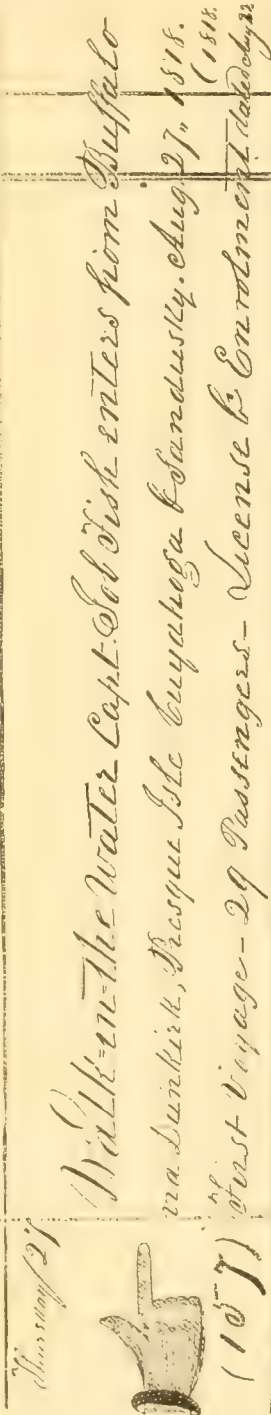 Thursday 27
Walk-in-the Water Capt. Job Fish enters from Buffalo
via Dunkirk, Presque Isle Cuyahoga & Sandusky. Aug. 27,, 1818.
(157) First Voyage - 29 Passengers - License & Enrolment dated Aug 22
(1818.